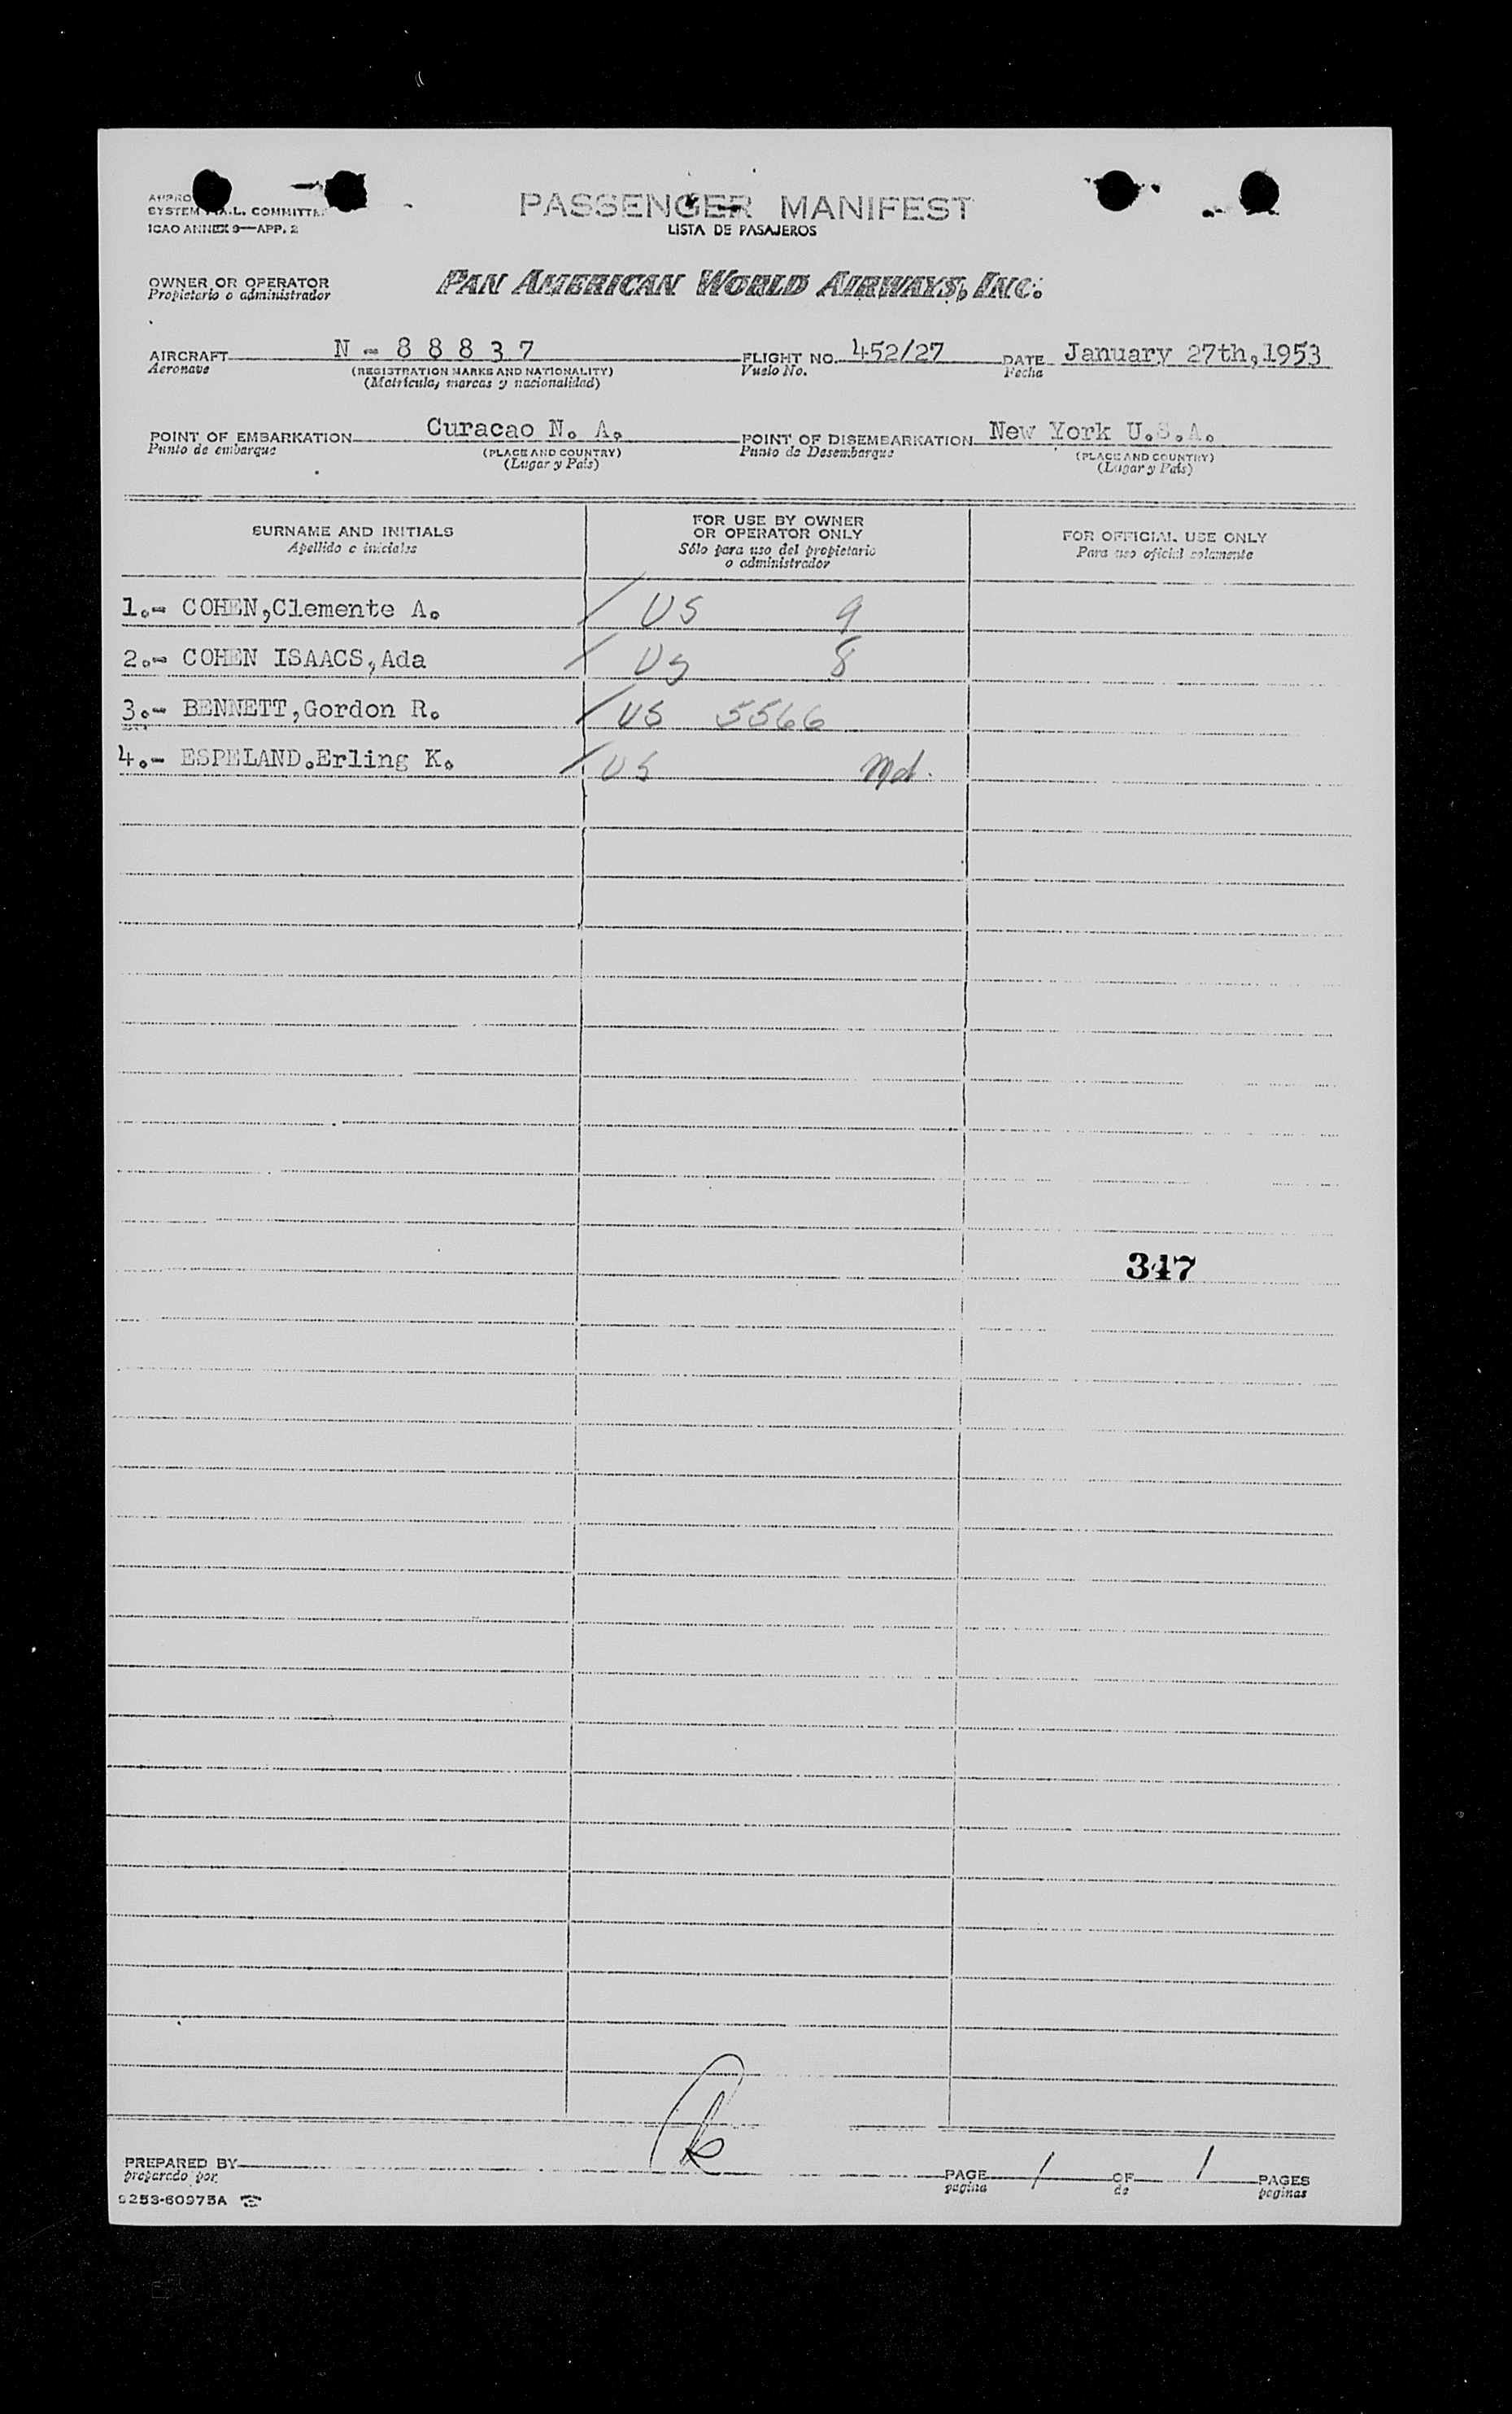 PASSENGER MANIFEST
LISTA DE PASAJEROS
SYSTEM A.L. COMMITTE
ICAO ANNEX 9—APP. 2
OWNER OR OPERATOR PAN AMERICAN WORLD AIRWAYS, INC.
Propietario o administrador
AIRCRAFT N - 8 8 8 3 7 FLIGHT NO. 452/27 DATE January 27th,1953
Aeronave (REGISTRATION MARKS AND NATIONALITY) Vuelo No. Fecha
(Matrícula, marcas y nacionalidad)
POINT OF EMBARKATION Curacao N. A. POINT OF DISEMBARKATION New York U.S.A.
Punto de embarque (PLACE AND COUNTRY) Punto de Desembarque (PLACE AND COUNTRY)
(Lugar y País) (Lugar y País)
SURNAME AND INITIALS FOR USE BY OWNER FOR OFFICIAL USE ONLY
Apellido e iniciales OR OPERATOR ONLY Para uso oficial solamente
Sólo para uso del propietario
o administrador
1.- COHEN,Clemente A. / US 9
2.- COHEN ISAACS,Ada / US 8
3.- BENNETT,Gordon R. / US 5566
4.- ESPELAND.Erling K. / US Md.
347
PREPARED BY PAGE 1 OF 1 PAGES
preparado por pagina de paginas
9253-60975A